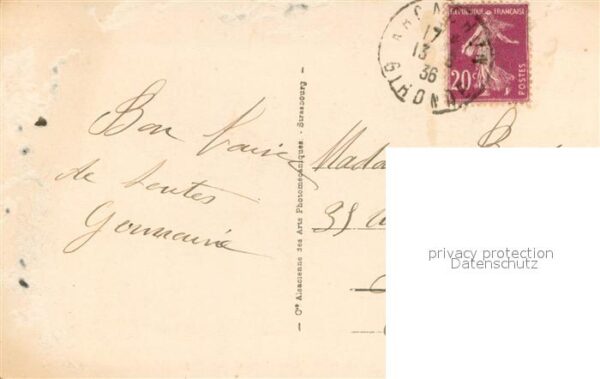 Bon Baiser
de toutes
Germaine
— Cie Alsacienne des Arts Photomécaniques - Strasbourg —
ARCACHON
17
13
36
GIRONDE
REPUBLIQUE FRANÇAISE
20c
POSTES
Mada
35
privacy protection
Datenschutz